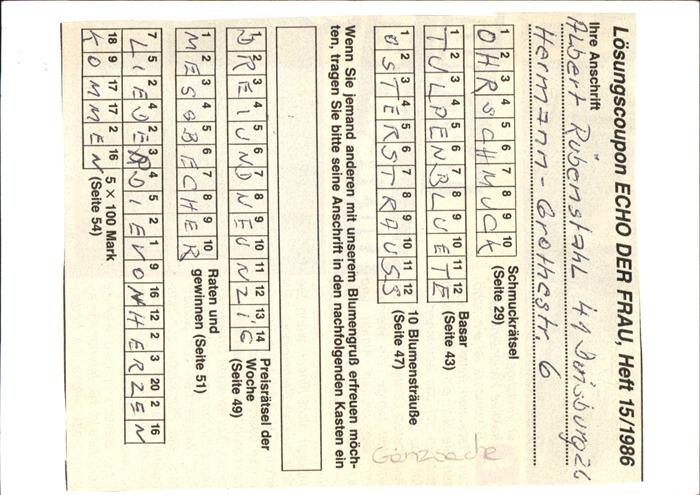 Lösungscoupon ECHO DER FRAU, Heft 15/1986
Ihre Anschrift
Albert Rübenstahl 41 Duisburg 26
Hermann-Grothestr. 6
1 2 3 4 5 6 7 8 9 10
OHRSCHMUCK
Schmuckrätsel
(Seite 29)
1 2 3 4 5 6 7 8 9 10 11 12
TULPENBLUETE
Basar
(Seite 43)
1 2 3 4 5 6 7 8 9 10 11 12
OSTERSTRAUSS
10 Blumensträuße
(Seite 47)
Wenn Sie jemand anderen mit unserem Blumengruß erfreuen möch-
ten, tragen Sie bitte seine Anschrift in den nachfolgenden Kasten ein
1 2 3 4 5 6 7 8 9 10 11 12 13 14
DREIUNDNEUNZIG
Preisrätsel der
Woche
(Seite 49)
1 2 3 4 5 6 7 8 9 10
MESSBECHER
Raten und
gewinnen (Seite 51)
7 5 2 4 2 3 4 5 2 1 9 16 12 2 3 20 2 16
LIEDERDIEVONHERZEN
18 9 17 17 2 16
KOMMEN
5 × 100 Mark
(Seite 54)
Ganzsache